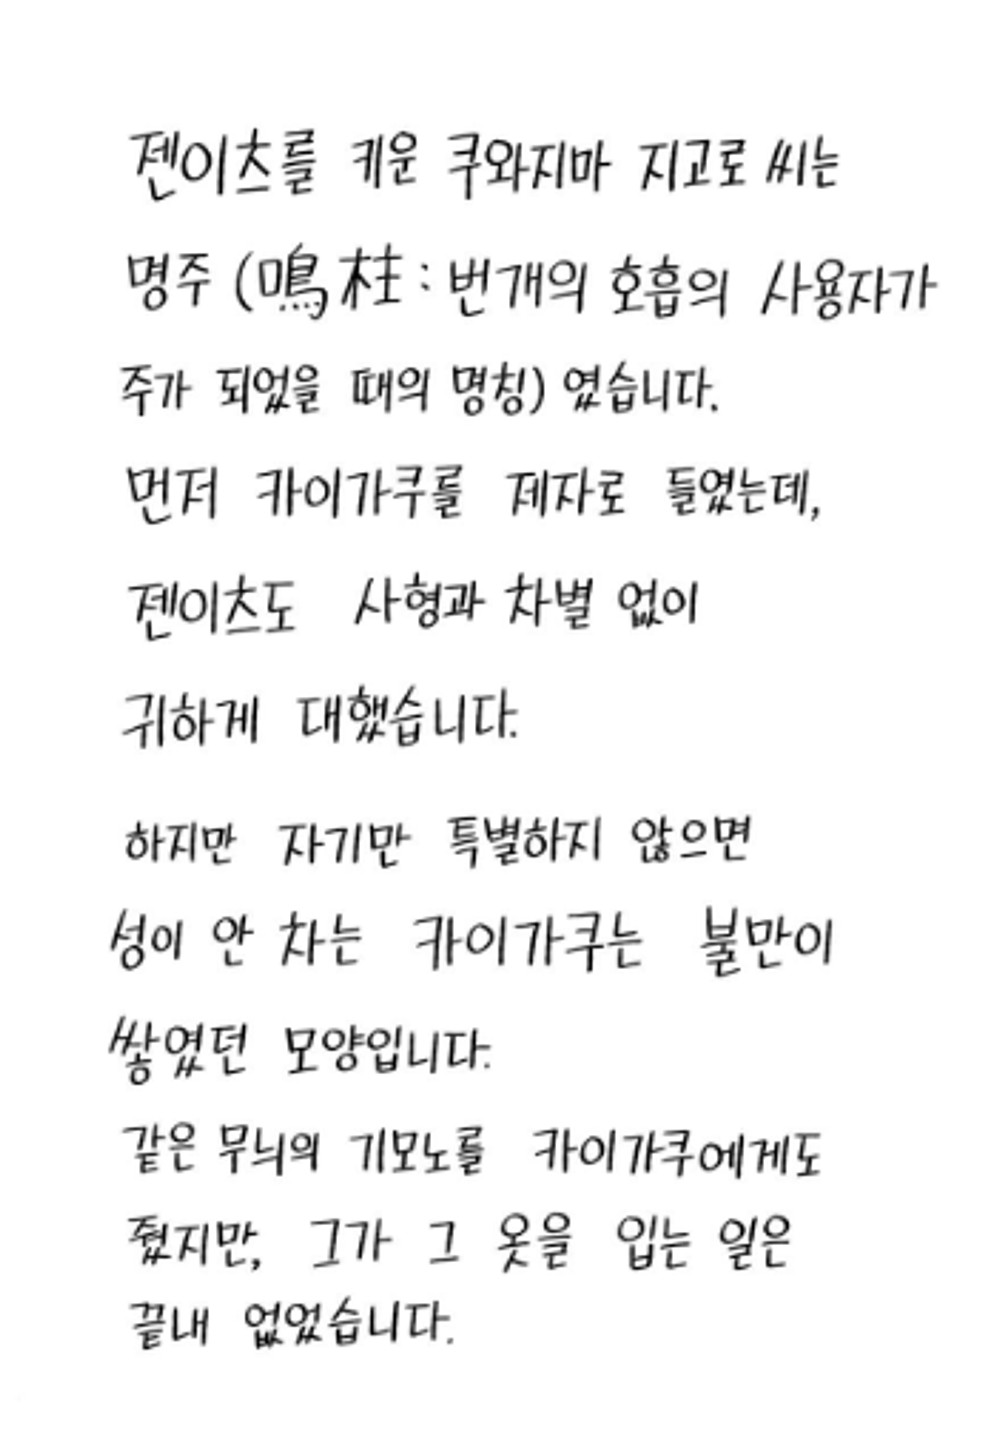 젠이츠를 키운 쿠와지마 지고로 씨는
명주 (鳴柱 : 번개의 호흡의 사용자가
주가 되었을 때의 명칭) 였습니다.
먼저 카이가쿠를 제자로 들였는데,
젠이츠도 사형과 차별 없이
귀하게 대했습니다.
하지만 자기만 특별하지 않으면
성이 안 차는 카이가쿠는 불만이
쌓였던 모양입니다.
같은 무늬의 기모노를 카이가쿠에게도
줬지만, 그가 그 옷을 입는 일은
끝내 없었습니다.